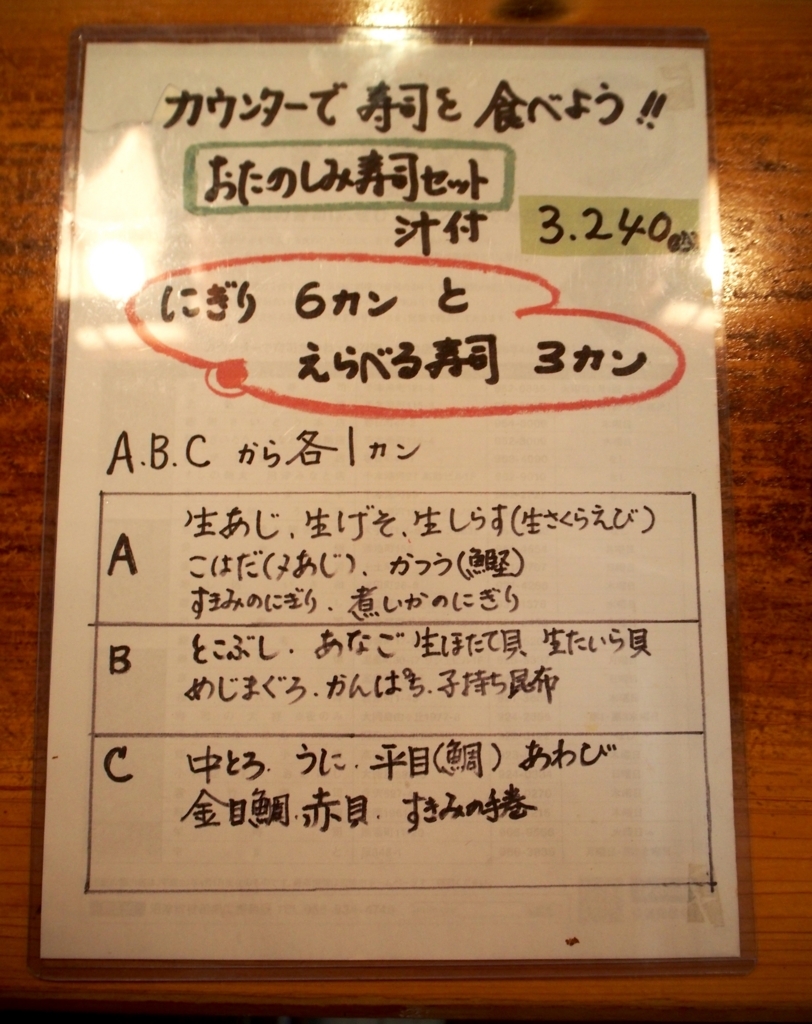 カウンターで 寿司を 食べよう!!
おたのしみ寿司セット
汁付 3.240
にぎり 6カン と
えらべる寿司 3カン
A.B.C から各1カン
A
生あじ、生げそ、生しらす(生さくらえび)
こはだ(〆あじ)、かつう(鰹)
すきみのにぎり、煮いかのにぎり
B
とこぶし・あなご 生ほたて貝 生たいら貝
めじまぐろ・かんぱち・子持ち昆布
C
中とろ・うに・平目(鯛) あわび
金目鯛・赤貝・すきみの手巻